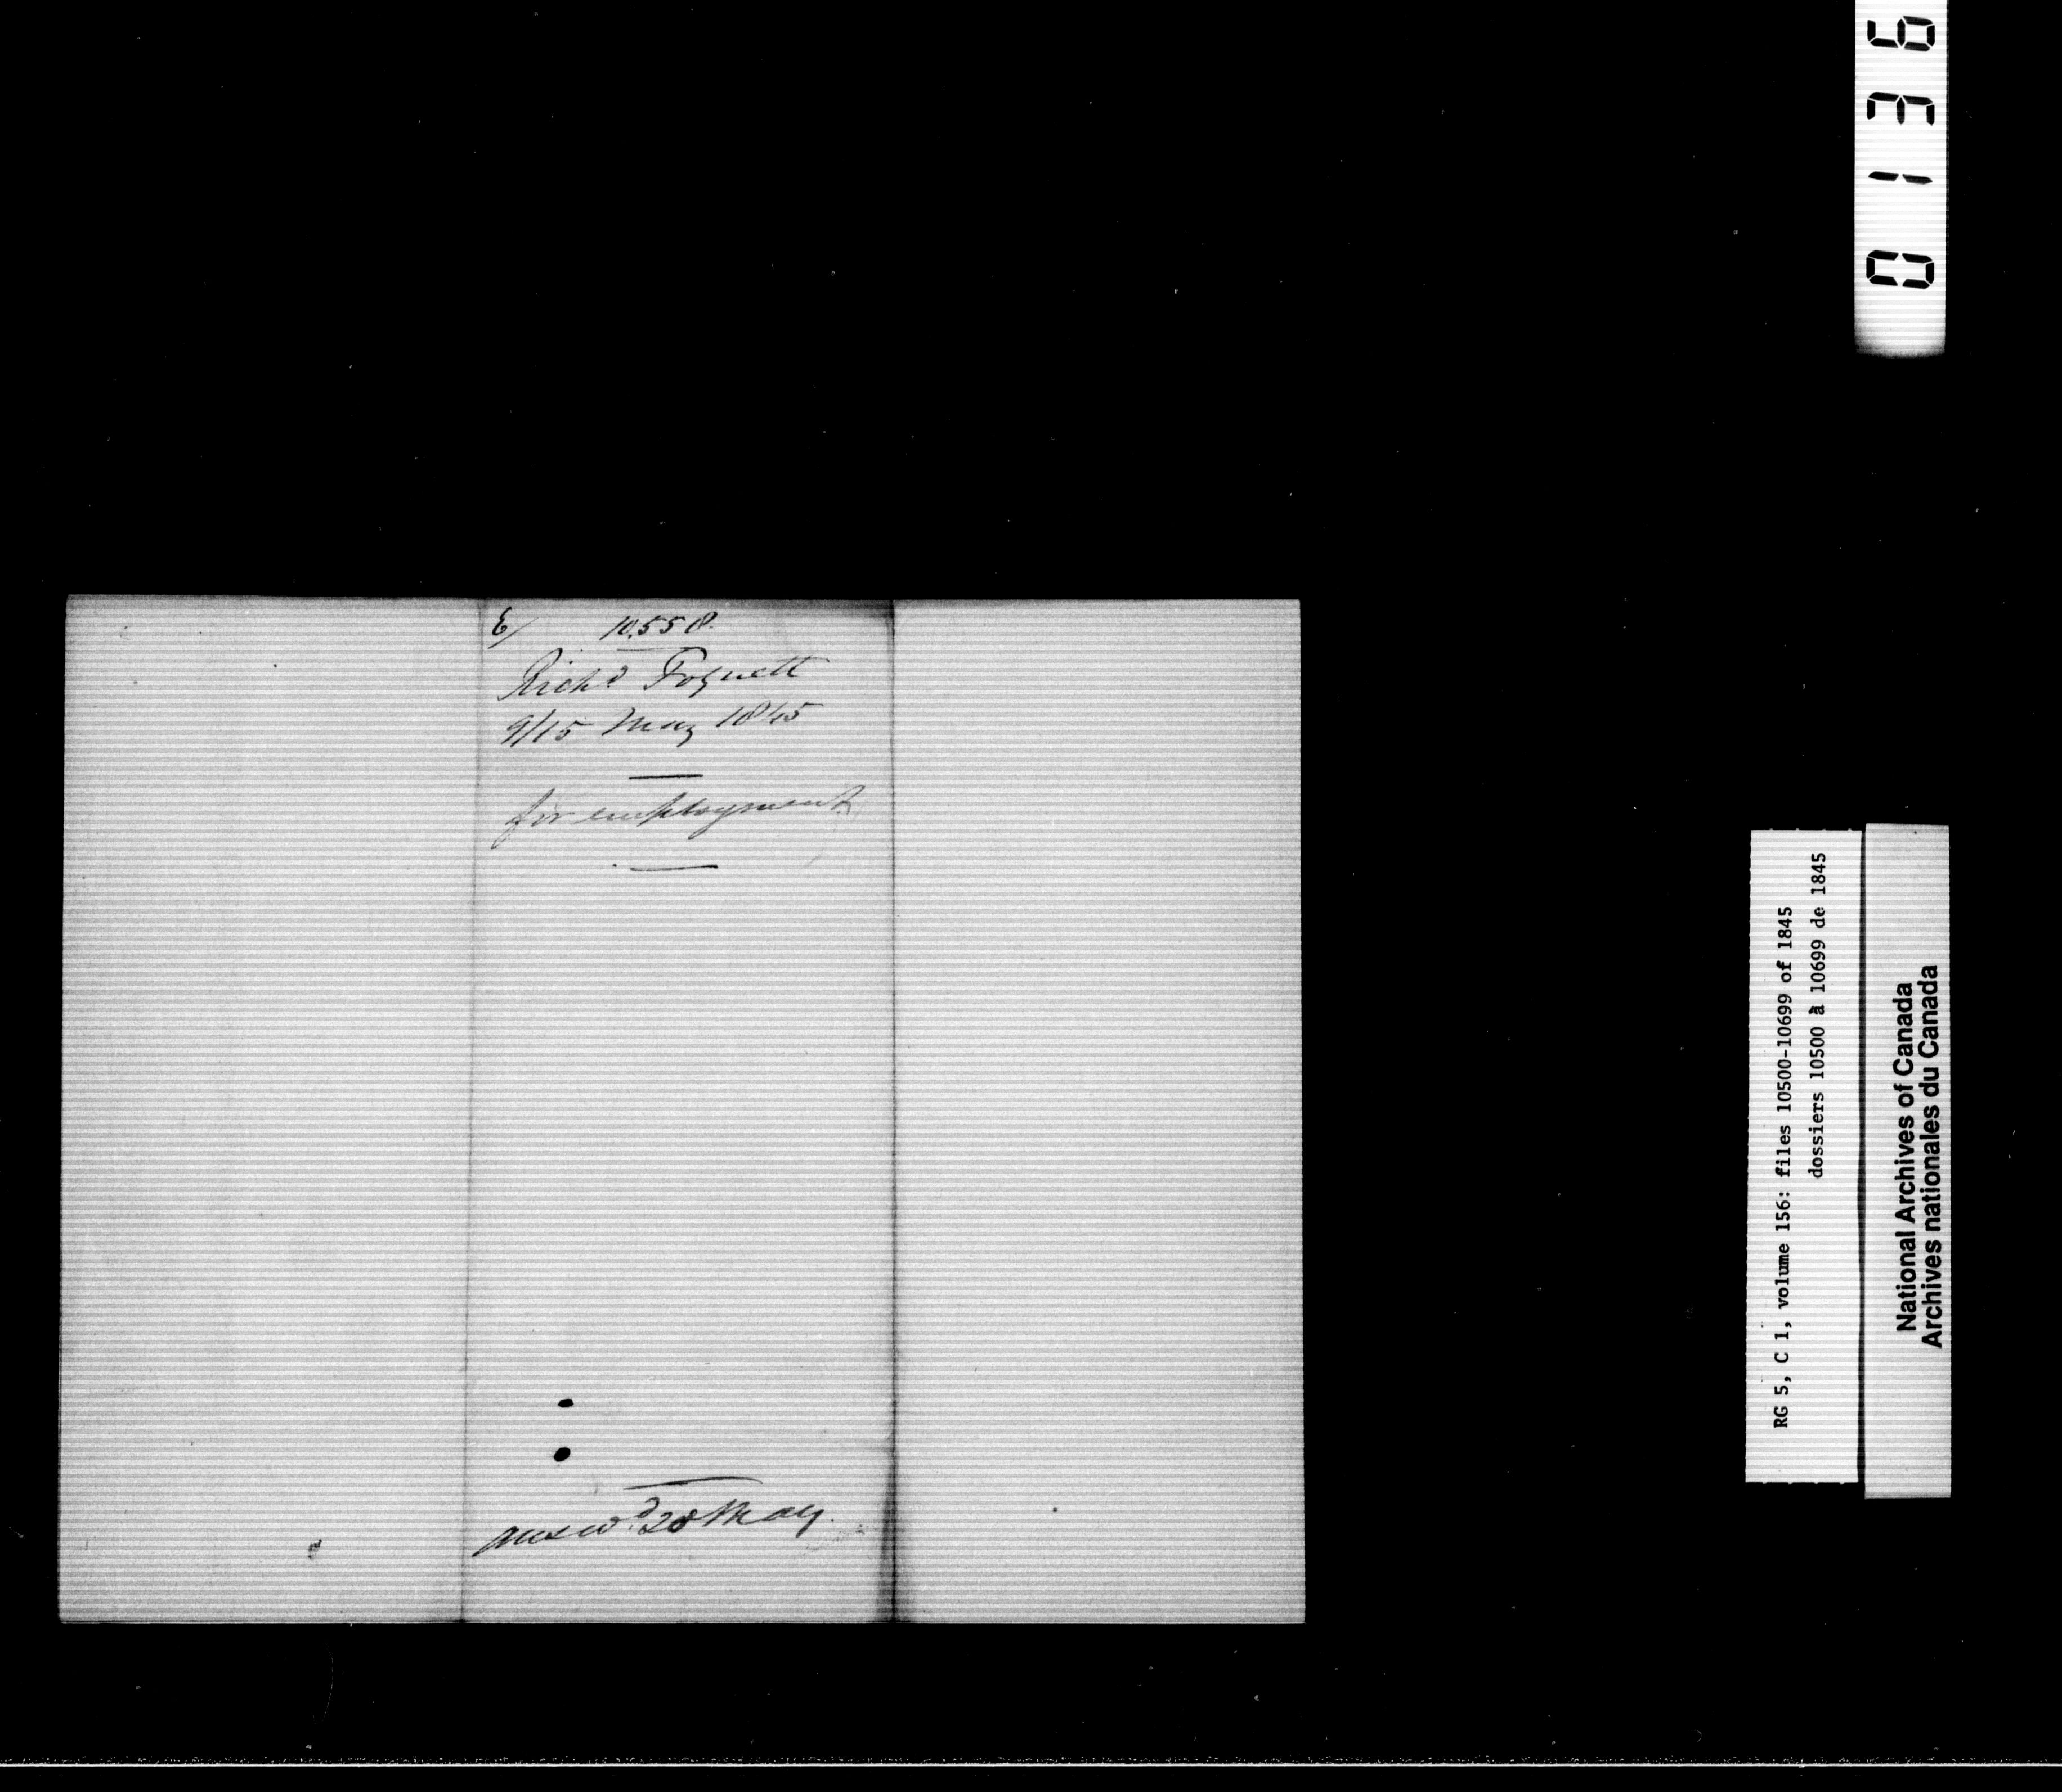 E/ 10.558.
Richd Foquett
9/15 May 1845
for employment.
answd. 28 May.
0136
RG 5, C 1, volume 156: files 10500-10699 of 1845
dossiers 10500 à 10699 de 1845
National Archives of Canada
Archives nationales du Canada